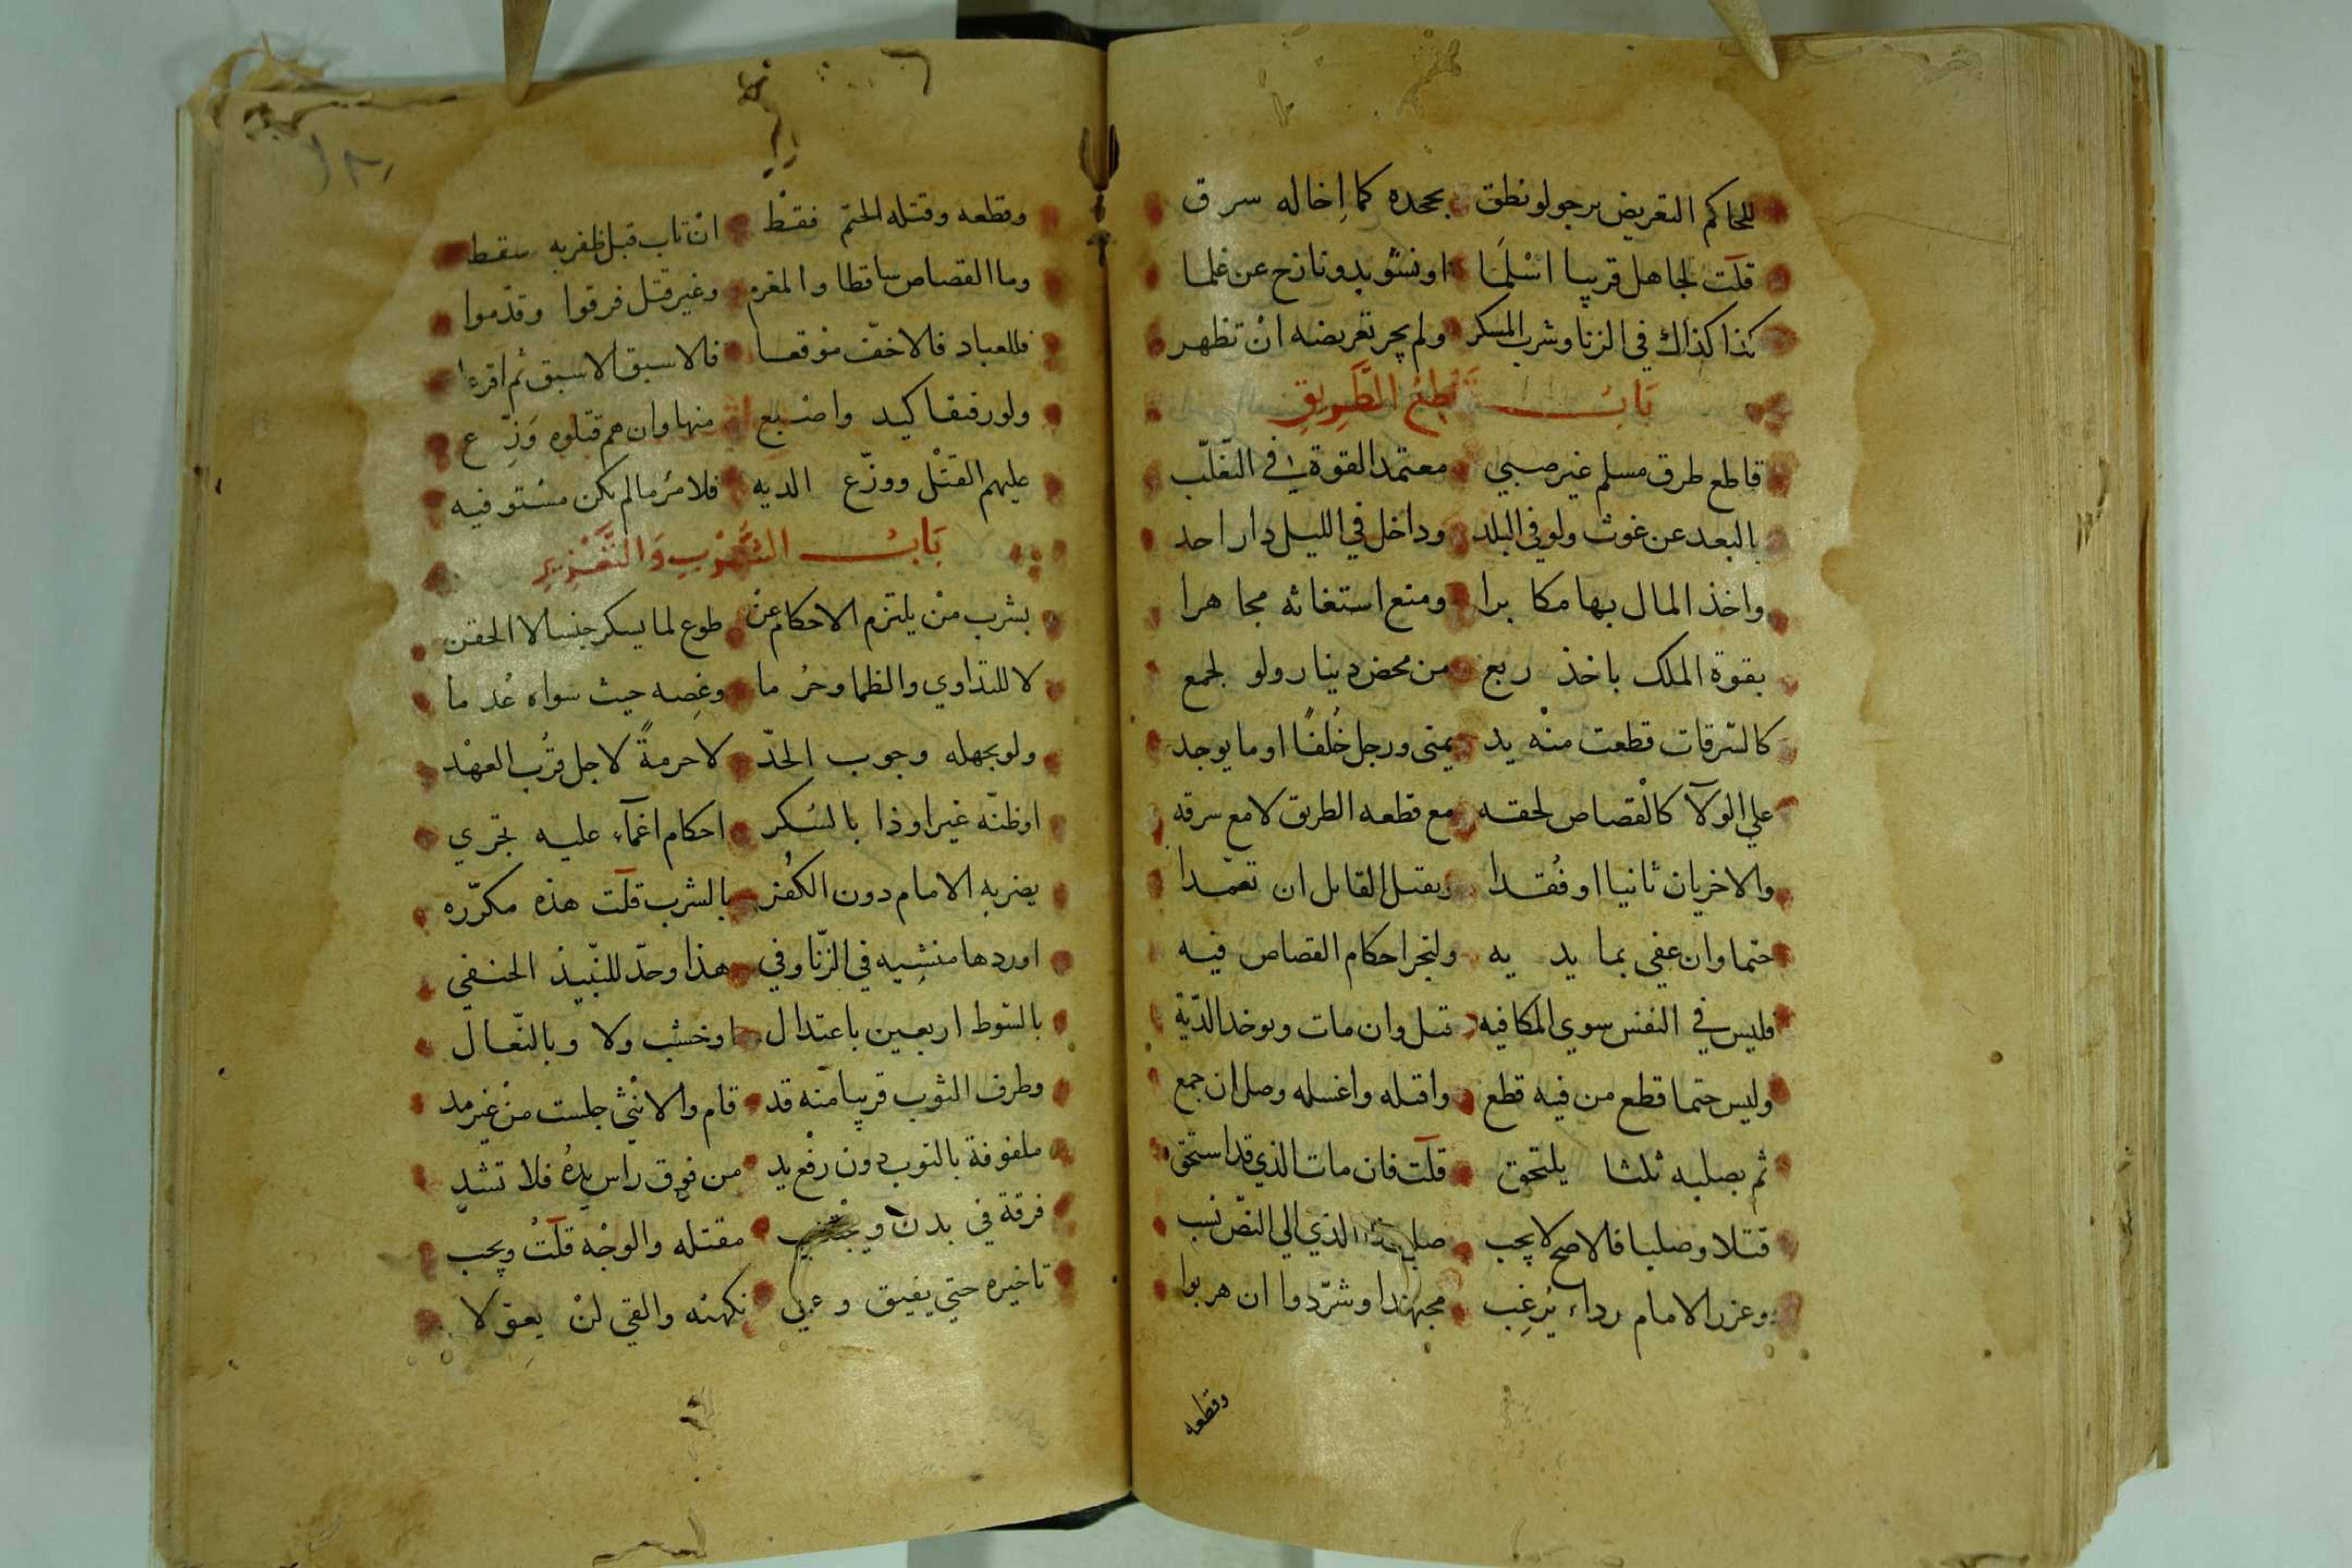 للحاكم التعريض برجو لو نطق بجحده كما إخاله سرق
قلت لجاهل قريبا اسْلَمَا او نشوبد ونازح عن علما
كذا كذاك في الزنا وشرب المسكر ولم يجر تعريضه انْ تظهر
بَابُ قَطْعُ الطَّرِيقِ
قاطع طرق مسلم غير صبي معتمد القوة في التغلّب
بالبعد عن غوث ولو في البلد وداخل في الليل دار احد
واخذ المال بها مكا برا ومنع استغاثه مجاهرا
بقوة الملك باخذ ربع من محض دينار ولو لجمع
كالسّرقات قطعت منْه يد يمنى ورجل خُلفًا او ما يوجد
علي الولآ كالْقصاص لحقه مع قطعه الطريق لا مع سرقه
والاخريان ثانيا او فُقدا ويقتل القاتل ان تعمّدا
حتما وان عفي بما يديه ولتجر احكام القصاص فيه
فليس في النفس سوي المكافيه قتل وان مات وبوخد الدّية
وليس حتما قطع من فيه قطع واقتله واغسله وصل ان جمع
ثم بصلبه ثلثا يلتحق قلت فان مات الذي قد استحق
قتلا وصلبا فالاصح لا يجب صلب الذي الي النصّ نسب
وعزر الامام رداء يُرغِب مجهدا وشرّدوا ان هربوا
وقطعه
وقطعه وقتله الحتم فقطْ انْ تاب قبل ظفر به سقط
وما القصاص ساقطا والمغرم وغير قتل فرقوا وقدّموا
فللعباد فالاخفّ موْقعا فالاسبق الاسبق ثم اقرعا
ولو رفقا كيد واصْبع منها وان هم قتلوه وَزِّع
عليهم القتْل ووزّع الديه فلامرُ ما لم يكن مسْتوفيه
بَابُ الشُّرْبِ وَالتَّعْزِيرِ
بشرب منْ يلتزم الاحكام عنْ طوع لما يسكر جنسا لا الحقن
لا للتداوي والظما وحرُ ما وغِصه حيث سواه عُدما
ولو بجهله وجوب الحدّ لا حرمةً لاجل قُرب العهْد
او ظنّه غيرا وذا بالسُكر احكام اغمآء عليه تجري
يضربه الامام دون الكُفْر بالشرب قلت هذه مكرّره
اوردها منشِيه في الزّنا وفي هذا وحدّ للنّبيذ الحنفي
بالسّوط اربعين باعتدال او خشب ولا وبالنّعال
وطرف الثوب قريبا منْه قد قام والانثي جلست منْ غير مد
ملفوفة بالثوب دون رفْع يد من فوق راس يدُه فلا تشد
فرقة في بدن ويجْتنب مقتله والوجْه قلتُ ويجب
تاخيره حتي يفيق وعني نكهته والقي لنْ يعِق لا